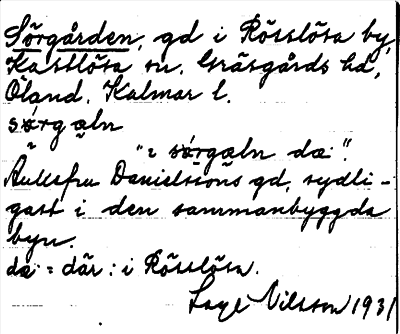 Sörgården, gd i Rösslösa by,
Kastlösa sn. Gräsgårds hd,
Öland. Kalmar l.
sørgæln
"ı sørgæln dæ".
Änkefru Danielssons gd, sydli-
gast i den sammanbyggda
byn.
dæ = där : i Rösslösa.
Lage Nilsson 1931